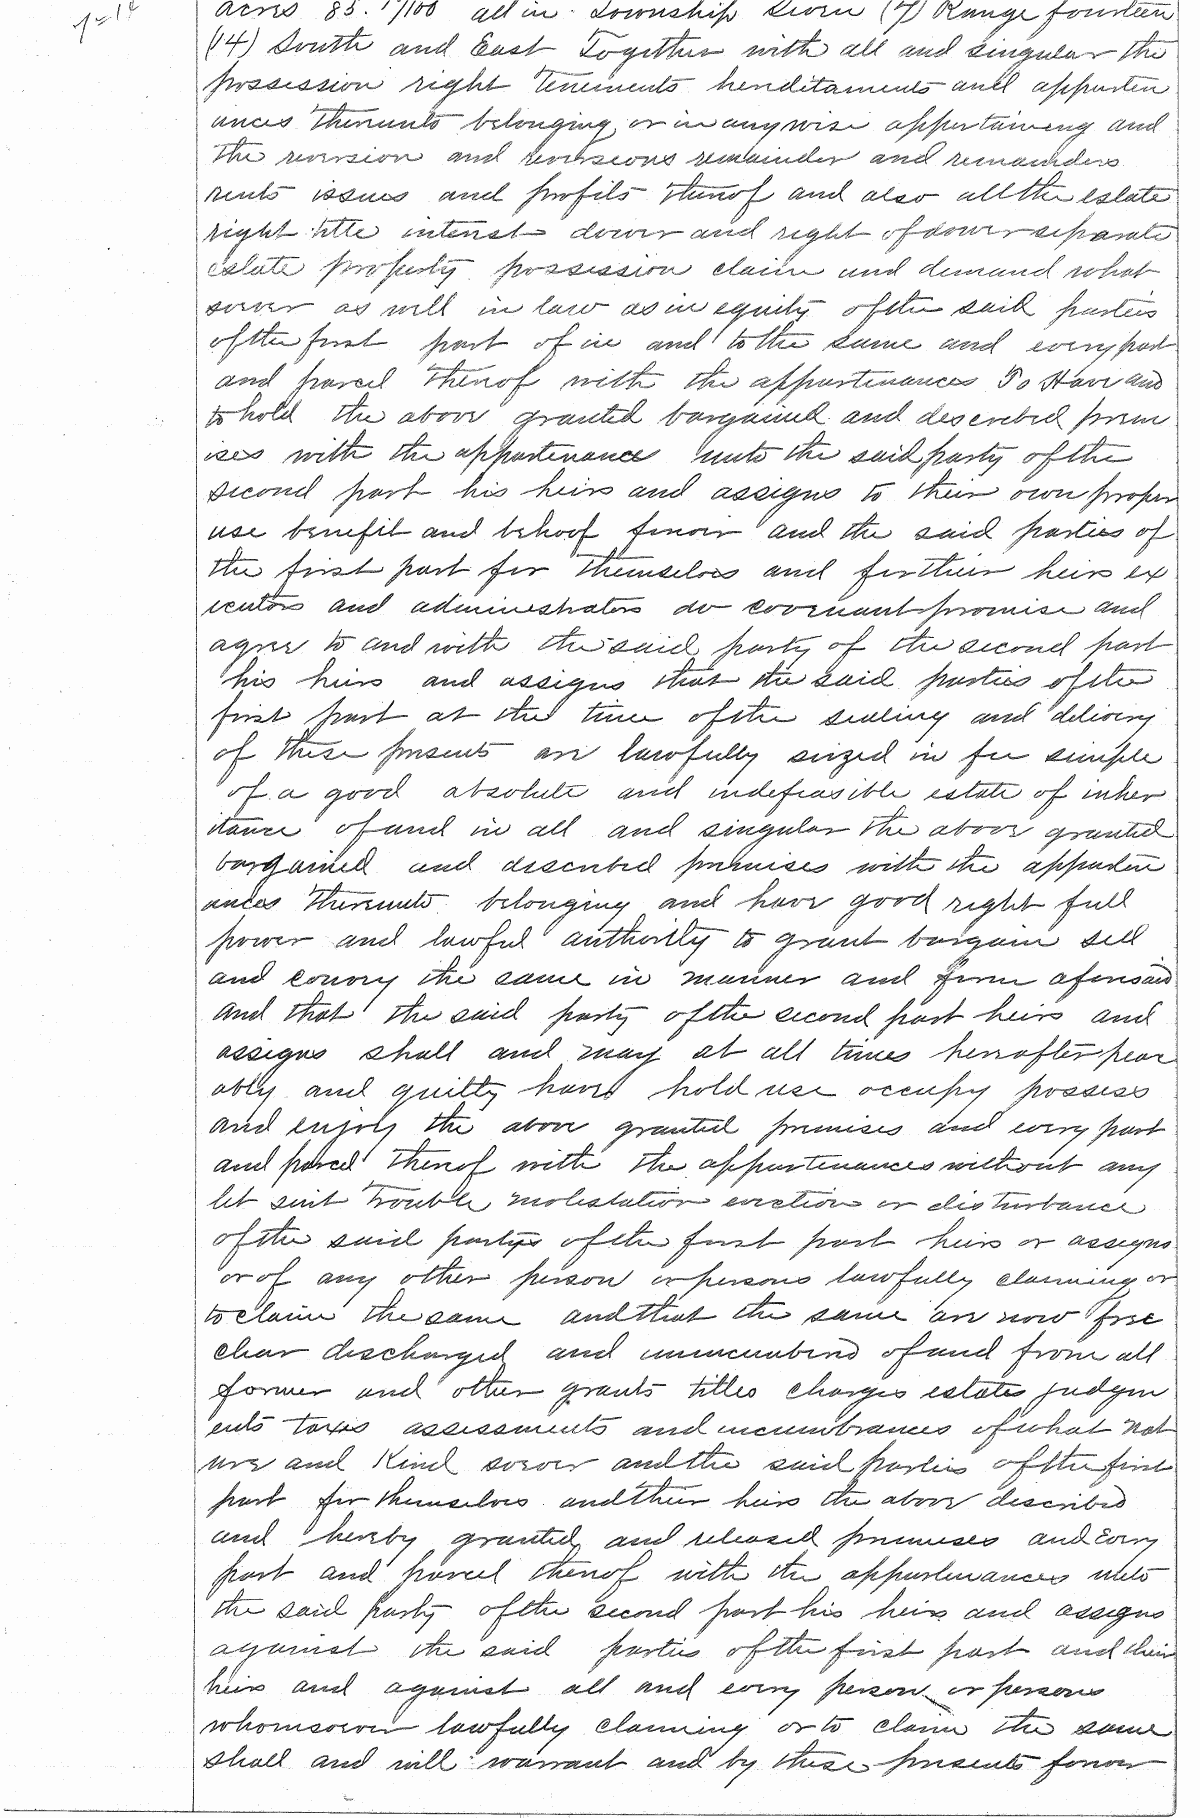 acres 85.17/100 all in Township Seven (7) Range fourteen
(14) South and East Together with all and singular the
possession right Tenements henditaments and appurten
ances Thereunto belonging or in any wise appertaining and
the reversion and reversions remainder and remainders
rents issues and profits thereof and also all the estate
right title interest dower and right of dower separate
estate property possession claim and demand what
soever as well in law as in equity of the said parties
of the first part of in and to the same and every part
and parcel thereof with the appurtenances To Have and
to hold the above granted bargained and described prem
ises with the appurtenance unto the said party of the
second part his heirs and assigns to their own proper
use benefit and behoof forever and the said parties of
the first part for themselves and for their heirs ex
ecutors and administrators do covenant promise and
agree to and with the said party of the second part
his heirs and assigns that the said parties of the
first part at the time of the sealing and delivery
of these presents are lawfully seized in fee simple
of a good absolute and indefeasible estate of inher
itance of and in all and singular the above granted
bargained and described premises with the appurten
ances thereunto belonging and have good right full
power and lawful authority to grant bargain sell
and convey the same in manner and form aforesaid
and that the said party of the second part heirs and
assigns shall and may at all times hereafter peac
ably and quitly have hold use occupy possess
and enjoy the above granted premises and every part
and parcel thereof with the appurtenances without any
let suit trouble molestation eviction or disturbance
of the said partys of the first part heirs or assigns
or of any other person or persons lawfully claiming or
to claim the same and that the same are now free
clear discharged and unincumbered of and from all
former and other grants titles charges estates judgm
ents taxes assessments and incumbrances of what nat
ure and Kind soever and the said parties of the first
part for themselves and their heirs the above described
and hereby granted and released premises and Every
part and parcel thereof with the appurtenances unto
the said party of the second part his heirs and assigns
against the said parties of the first part and their
heirs and against all and every person or persons
whomsoever lawfully claiming or to claim the same
shall and will warrant and by these presents forever